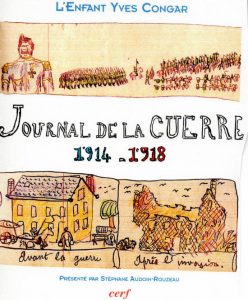 L'ENFANT YVES CONGAR
JOURNAL DE LA GUERRE
1914-1918
avant la guerre
Après l'invasion.
PRÉSENTÉ PAR STÉPHANE AUDOIN-ROUZEAU
cerf